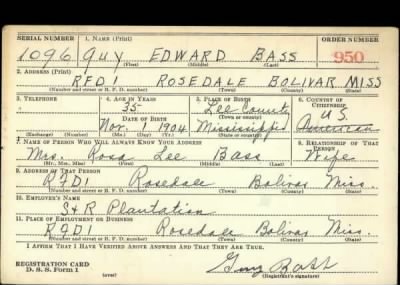 SERIAL NUMBER 1. NAME (Print) ORDER NUMBER
1096 GUY EDWARD BASS 950
(First) (Middle) (Last)
2. ADDRESS (Print)
RFD1 ROSEDALE BOLIVAR MISS
(Number and street or R. F. D. number) (Town) (County) (State)
3. TELEPHONE 4. AGE IN YEARS 5. PLACE OF BIRTH 6. COUNTRY OF CITIZENSHIP
35 Lee County U.S.
DATE OF BIRTH (Town or county)
Nov. 1 1904 Mississippi American
(Exchange) (Number) (Mo.) (Day) (Yr.) (State or country)
7. NAME OF PERSON WHO WILL ALWAYS KNOW YOUR ADDRESS 8. RELATIONSHIP OF THAT PERSON
Mrs. Rosa Lee Bass Wife
(Mr., Mrs., Miss) (First) (Middle) (Last)
9. ADDRESS OF THAT PERSON
RFD1 Rosedale Bolivar Miss.
(Number and street or R. F. D. number) (Town) (County) (State)
10. EMPLOYER'S NAME
S+R Plantation
11. PLACE OF EMPLOYMENT OR BUSINESS
RFD1 Rosedale Bolivar Miss.
(Number and street or R. F. D. number) (Town) (County) (State)
I AFFIRM THAT I HAVE VERIFIED ABOVE ANSWERS AND THAT THEY ARE TRUE.
REGISTRATION CARD
D. S. S. Form 1 (over) Guy Bass
(Registrant's signature)